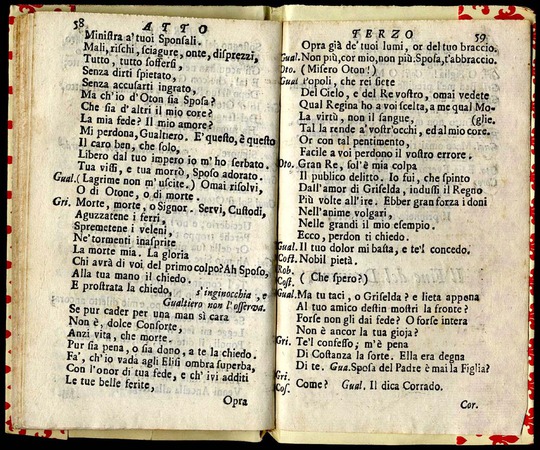 58
ATTO
Ministra a' tuoi Sponsali.
Mali, rischi, sciagure, onte, disprezzi,
Tutto, tutto soffersi,
Senza dirti spietato,
Senza accusarti ingrato,
Ma ch'io d'Oton sia Sposa?
Che sia d'altri il mio core?
La mia fede? Il mio amore?
Mi perdona, Gualtiero. E' questo, è questo
Il caro ben, che solo,
Libero dal tuo impero io m'ho serbato.
Tua vissi, e tua morrò, Sposo adorato.
Gual. (Lagrime non m'uscite.) Omai risolvi,
O di Otone, o di morte.
Gri. Morte, morte, o Signor. Servi, Custodi,
Aguzzatene i ferri,
Spremetene i veleni,
Ne' tormenti inasprite
La morte mia. La gloria
Chi avrà di voi del primo colpo? Ah Sposo,
Alla tua mano il chiedo.
E prostrata la chiedo, s'inginocchia, e
Gualtiero non l'osserva.
Se pur cader per una man sì cara
Non è, dolce Consorte,
Anzi vita, che morte.
Pur sia pena, o sia dono, a te la chiedo.
Fa', ch'io vada agli Elisi ombra superba,
Con l'onor di tua fede, e ch'ivi additi
Le tue belle ferite,
Opra
TERZO
59
Opra già de' tuoi lumi, or del tuo braccio.
Gual. Non più, cor mio, non più: Sposa, t'abbraccio.
Oto. (Misero Oton!)
Gual. Popoli, che rei siete
Del Cielo, e del Re vostro, omai vedete
Qual Regina ho a voi scelta, a me qual Mo-
La virtù, non il sangue, (glie.
Tal la rende a' vostr'occhi, ed al mio core.
Or con tal pentimento,
Facile a voi perdono il vostro errore.
Oto. Gran Re, sol'è mia colpa
Il publico delitto. Io fui, che spinto
Dall'amor di Griselda, indussi il Regno
Più vòlte all'ire. Ebber gran forza i doni
Nell'anime volgari,
Nelle grandi il mio esempio.
Ecco, perdon ti chiedo.
Gual. Il tuo dolor mi basta, e te'l concedo.
Cost. Nobil pietà.
Rob.
Cost. (Che spero?)
Gual. Ma tu taci, o Griselda? e lieta appena
Al tuo amico destin mostri la fronte?
Forse non gli dai fede? O forse intera
Non è ancor la tua gioja?
Gri. Te'l confesso; m'è pena
Di Costanza la sorte. Ella era degna
Di te. Gua. Sposa del Padre è mai la Figlia?
Gri.
Cos. Come? Gual. Il dica Corrado.
Cor.